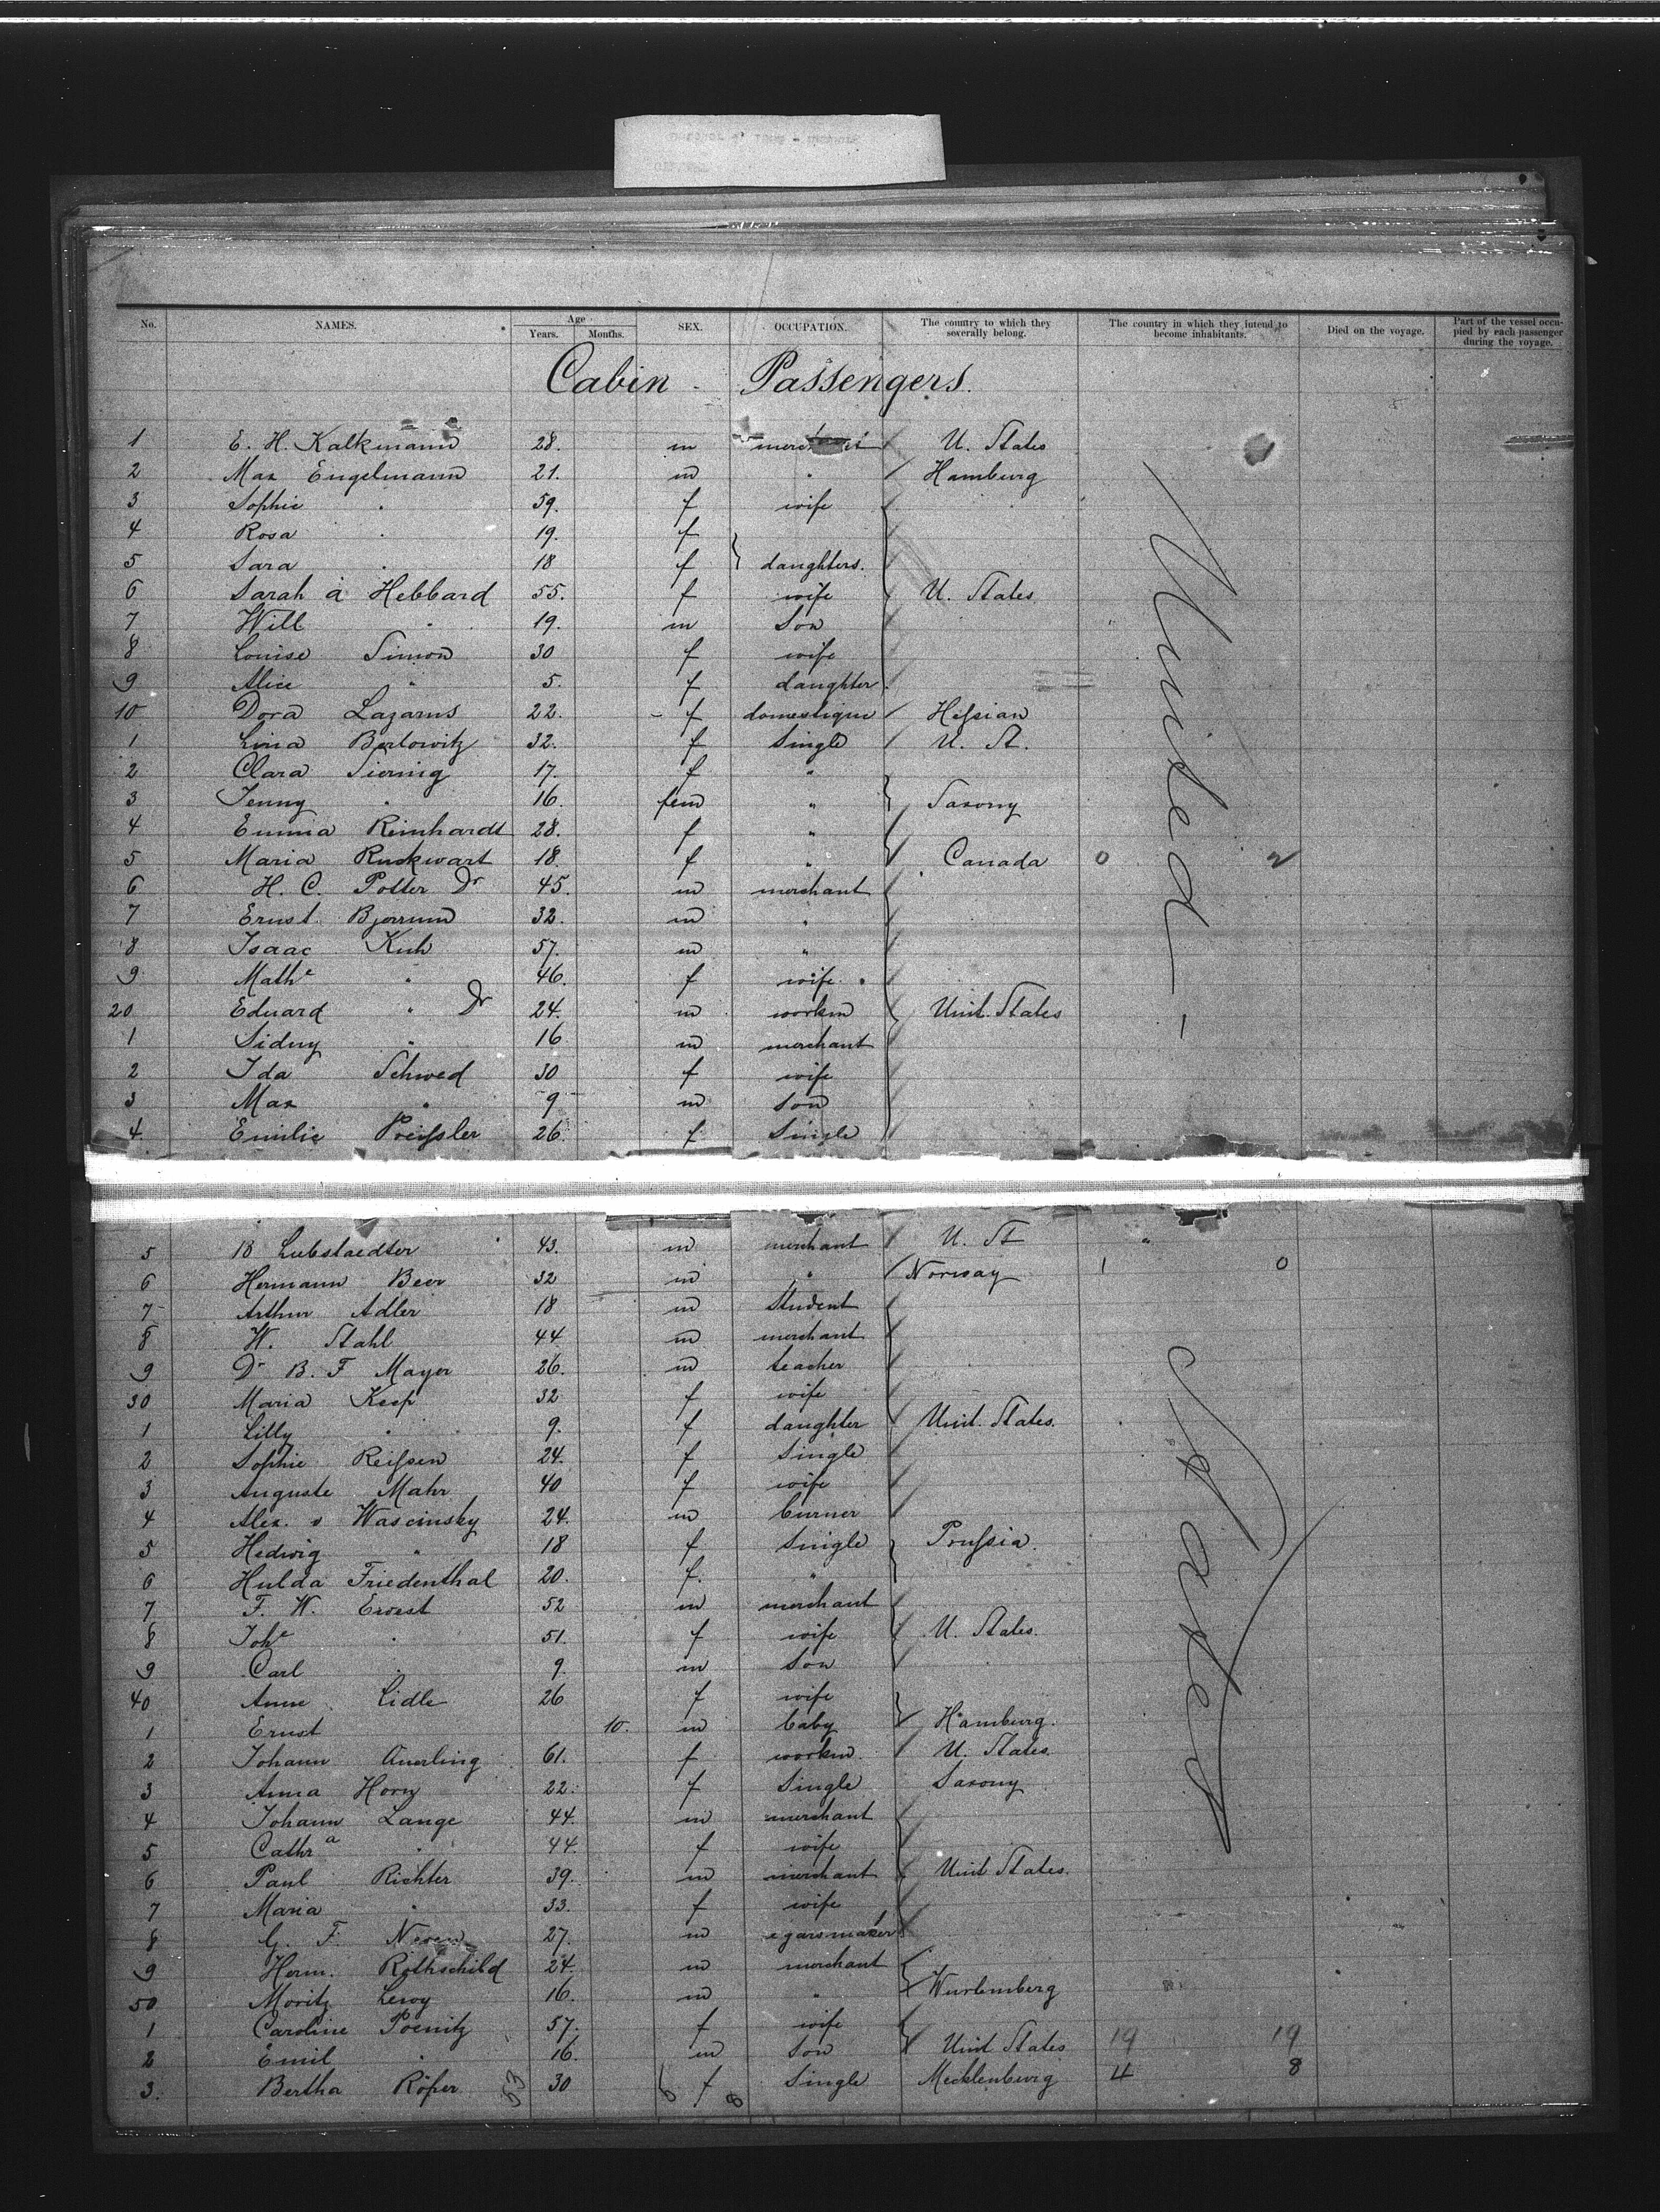 No. NAMES. Age Years. Months. SEX. OCCUPATION. The country to which they severally belong. The country in which they intend to become inhabitants. Died on the voyage. Part of the vessel occupied by each passenger during the voyage.
Cabin Passengers.
1 E. H. Kalkmann 28. m U. States
2 Max Engelmann 21. m " Hamburg
3 Sophie " 59. f wife
4 Rosa " 19. f
5 Sara " 18 f daughters.
6 Sarah a Hebbard 55. f wife U. States
7 Will " 19. m Son
8 Louise Simon 30 f wife
9 Alice " 5. f daughter
10 Dora Lazarus 22. f domestique Hessian
1 Lina Berlowitz 32. f Single U. St.
2 Clara Siering 17. f "
3 Jenny " 16. fem " Saxony
4 Emma Reinhardt 28. f "
5 Maria Ruckwart 18. f " Canada 0 2
6 H. C. Potter Dr 45. m merchant
7 Ernst Bjerrum 32. m "
8 Isaac Kuh 57. m "
9 Mathe " 46. f wife
20 Eduard " Dr 24. m workm Unit. States
1 Sidney " 16 m merchant
2 Ida Schwed 30 f wife
3 Max " 9 m Son
4 Emilie Preissler 26. f Single
5 B Liebstaedter 43. m merchant U. St "
6 Hermann Beer 32 m " Norway 1 0
7 Arthur Adler 18 m Student
8 W. Stahl 44 m merchant
9 Dr B. F Mayer 26. m teacher
30 Maria Keep 32 f wife
1 Lilly " 9. f daughter Unit. States.
2 Sophie Reissen 24. f Single
3 Auguste Mahr 40 f wife
4 Alex. v Wascinsky 24. m
5 Hedwig " 18 f Single Prussia.
6 Hulda Friedenthal 20. f. "
7 F. W. Ernest 52 m merchant
8 Johe " 51. f wife U. States.
9 Carl " 9. m Son
40 Anne Lidle 26 f wife
1 Ernst 10. m baby Hamburg.
2 Johann Auerling 61. f workm. U. States.
3 Anna Horn 22. f Single Saxony
4 Johann Lange 44. m merchant
5 Cathra " 44 f wife
6 Paul Richter 39. m merchant Unit States.
7 Maria " 33. f wife
8 G. F. Neven 27. m cgarsmaker
9 Herm. Rothschild 24. m merchant
50 Moritz Levy 16. m " Wurtemberg
1 Caroline Poenitz 57. f wife
2 Emil " 16. m Son Unit States 19 19
3. Bertha Röper 53 30 6 f 8 Single Mecklenburg 4 8
United -
States